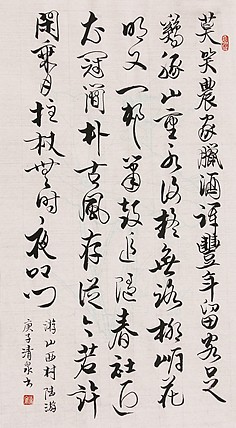 莫笑農家臘酒渾豐年留客足
雞豚山重水複疑無路柳暗花
明又一村簫鼓追隨春社近
衣冠簡朴古風存從今若許
閑乘月拄杖無時夜叩門
游山西村陸游
庚子清泉书